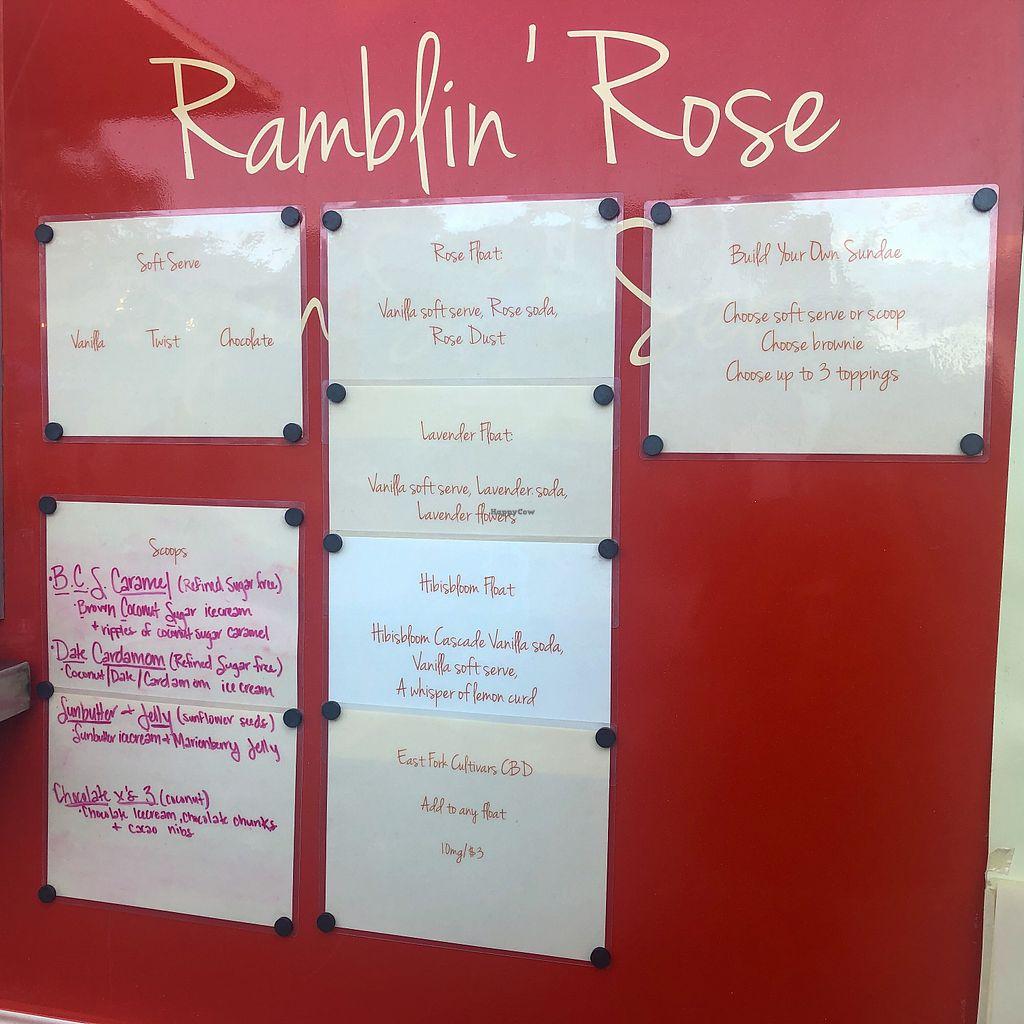 Ramblin' Rose
Soft Serve
Vanilla Twist Chocolate
Scoops
·B.C.S. Caramel (Refined Sugar free)
·Brown Coconut Sugar icecream
+ ripples of coconut sugar caramel
·Date Cardamom (Refined Sugar free)
·Coconut/Date/Cardamom ice cream
Sunbutter + Jelly (sunflower seeds)
·Sunbutter icecream + Marionberry Jelly
Chocolate x's 3 (coconut)
·Chocolate Icecream, chocolate chunks
+ cacao nibs
Rose Float:
Vanilla soft serve, Rose soda,
Rose Dust
Lavender Float:
Vanilla soft serve, Lavender soda,
Lavender flowers
HappyCow
Hibisbloom Float
Hibisbloom Cascade Vanilla soda,
Vanilla soft serve,
A whisper of lemon curd
East Fork Cultivars CBD
Add to any float
10mg/$3
Build Your Own Sundae
Choose soft serve or scoop
Choose brownie
Choose up to 3 toppings